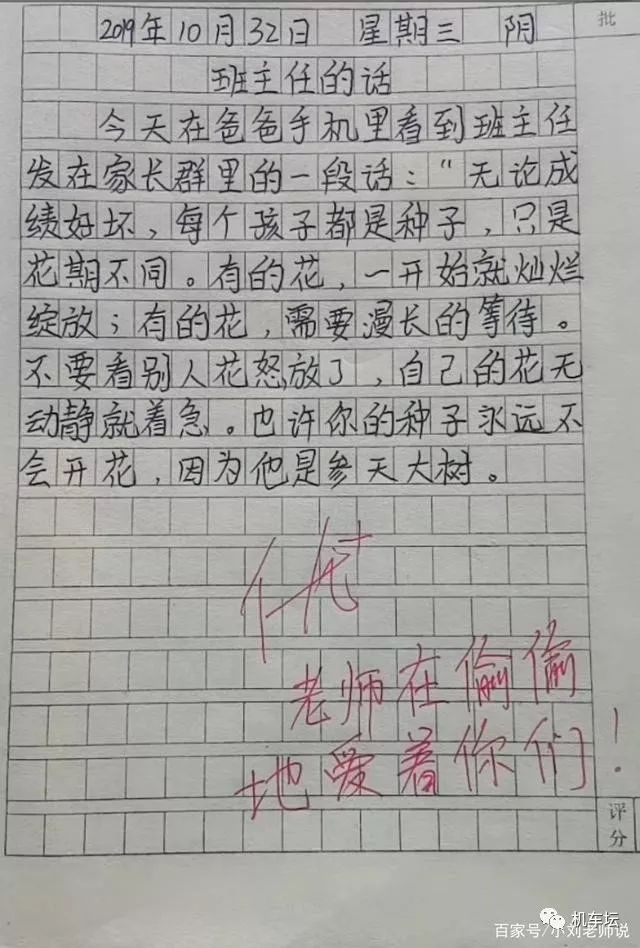 批
2019年10月32日 星期三 阴
班主任的话
今天在爸爸手机里看到班主任
发在家长群里的一段话：“无论成
绩好坏，每个孩子都是种子，只是
花期不同。有的花，一开始就灿烂
绽放；有的花，需要漫长的等待。
不要看别人花怒放了，自己的花无
动静就着急。也许你的种子永远不
会开花，因为他是参天大树。
优+
老师在偷偷
地爱着你们！
评分
机车坛
百家号/小刘老师说